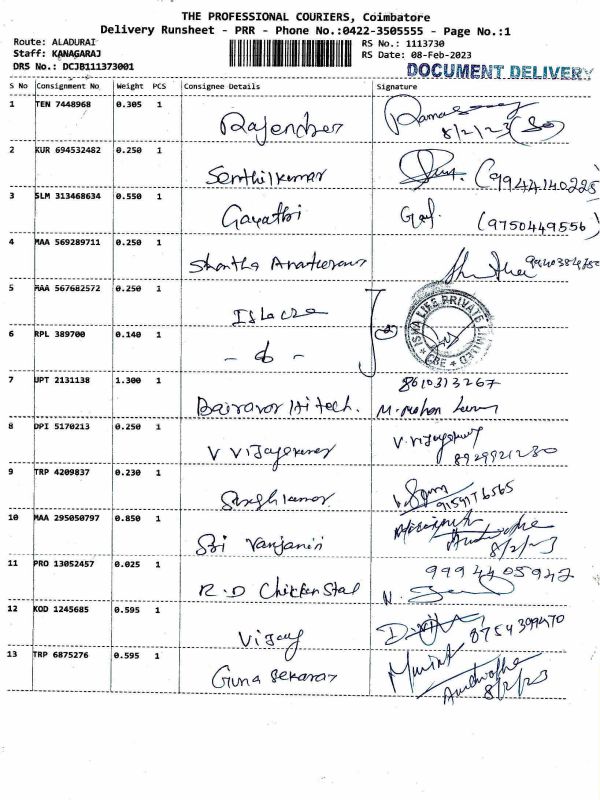 THE PROFESSIONAL COURIERS, Coimbatore
Delivery Runsheet - PRR - Phone No.:0422-3505555 - Page No.:1
Route: ALADURAI
Staff: KANAGARAJ
DRS No.: DCJB111373001
RS No.: 1113730
RS Date: 08-Feb-2023
DOCUMENT DELIVERY
S No Consignment No Weight PCS Consignee Details Signature
1 TEN 7448968 0.305 1
Rajender 8/2/23
2 KUR 694532482 0.250 1
Senthilkumar (9944140225
3 SLM 313468634 0.550 1
Gayathri (9750449556)
4 MAA 569289711 0.250 1
Shantha
5 MAA 567682572 0.250 1
ISHA LIFE PRIVATE LIMITED
CBE
6 RPL 389700 0.140 1
7 UPT 2131138 1.300 1 8610313267
Hitech. M. Mohan
8 DPI 5170213 0.250 1
V Vijaykumar 8929921230
9 TRP 4209837 0.230 1
9159176565
10 MAA 295050797 0.850 1
Sri Ranjanin 8/2/23
11 PRO 13052457 0.025 1 9994405942
R.D Chicken Stal
12 KOD 1245685 0.595 1
Vijay 8754399470
13 TRP 6875276 0.595 1
Guna sekaran 8/2/23